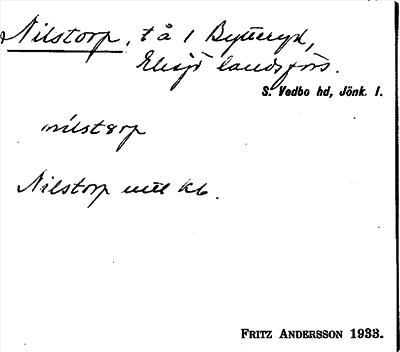 Nilstorp, t å 1 Bytteryd,
landsförs.
S. Vedbo hd, Jönk. l.
nilstorp
Nilstorp utt kb.
FRITZ ANDERSSON 1933.